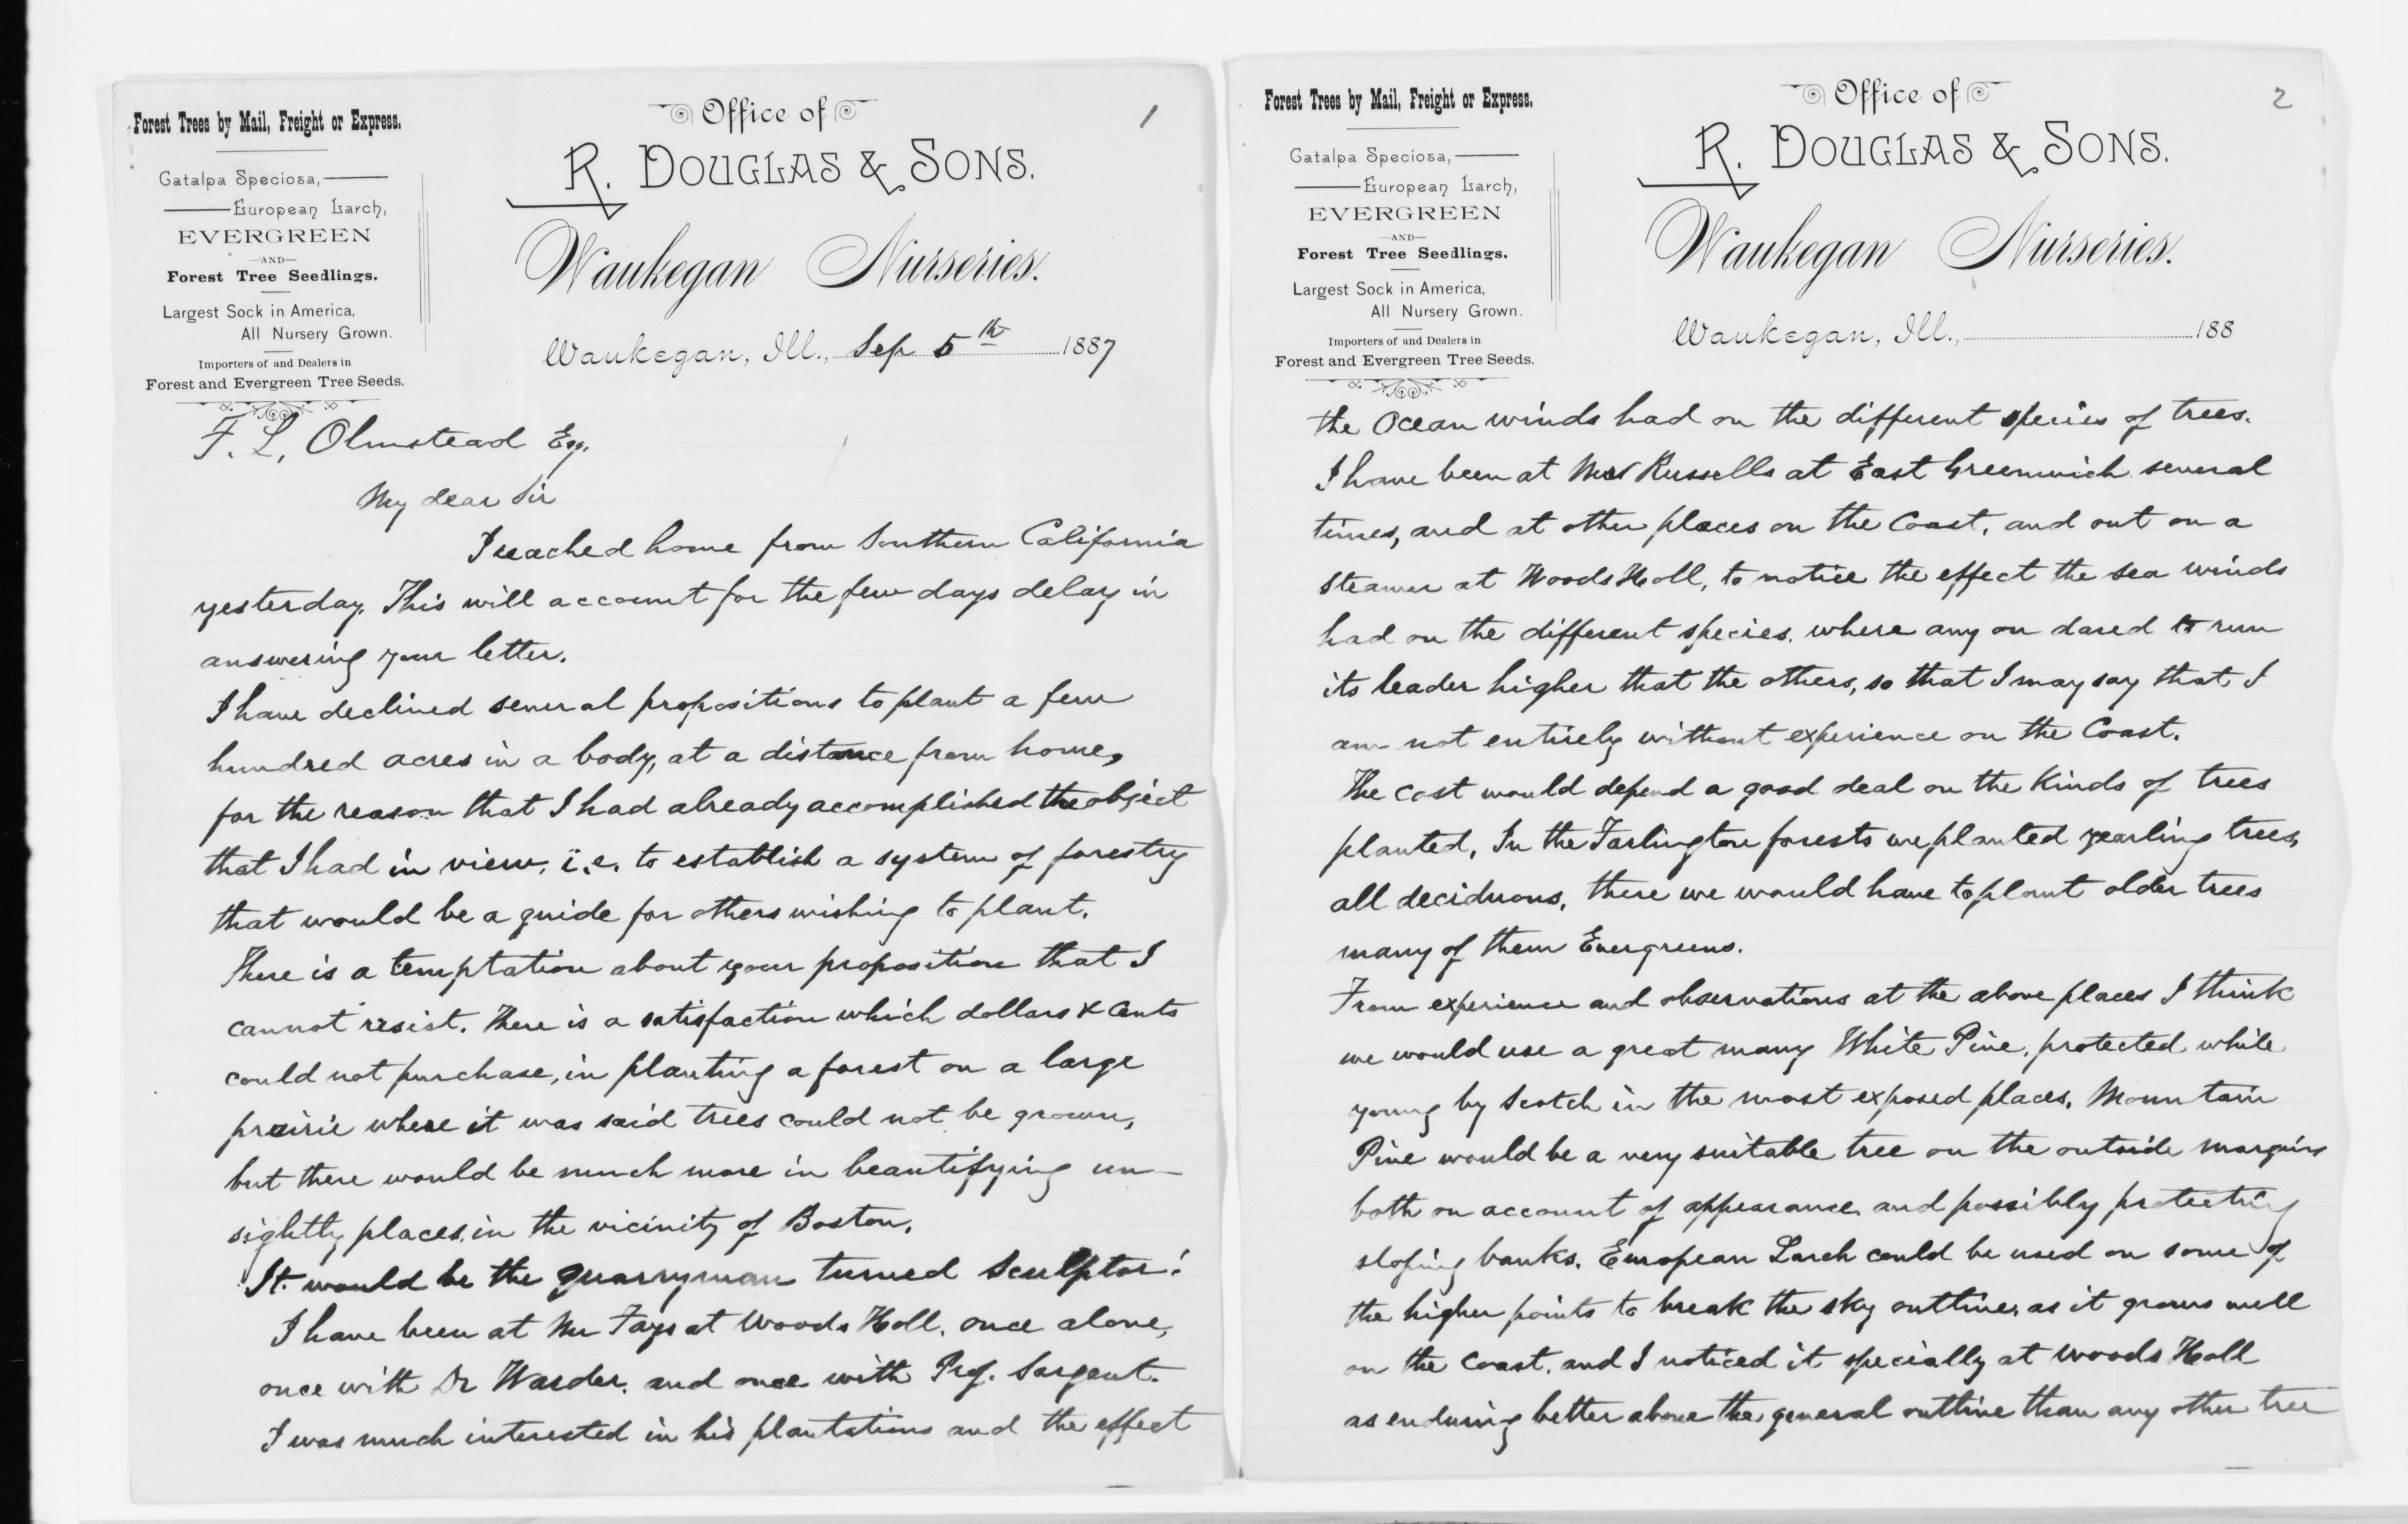 1
Forest Trees by Mail, Freight or Express.
Catalpa Speciosa,
European Larch,
EVERGREEN
—AND—
Forest Tree Seedlings.
Largest Sock in America,
All Nursery Grown.
Importers of and Dealers in
Forest and Evergreen Tree Seeds.
Office of
R. DOUGLAS & SONS.
Waukegan Nurseries.
Waukegan, Ill., Sep 5th 1887
F. L, Olmstead Esq.
My dear Sir
I reached home from Southern California
yesterday. This will account for the few days delay in
answering your letter.
I have declined several propositions to plant a few
hundred acres in a body, at a distance from home,
for the reason that I had already accomplished the object
that I had in view, i.e. to establish a system of forestry
that would be a guide for others wishing to plant.
There is a temptation about your proposition that I
cannot resist. There is a satisfaction which dollars & cents
could not purchase, in planting a forest on a large
prairie where it was said trees could not be grown,
but there would be much more in beautifying un-
sightly places, in the vicinity of Boston.
It would be the quarryman turned Sculptor!
I have been at Mr Fays at Woods Holl. once alone,
once with Dr Warder. and once with Prof. Sargent.
I was much interested in his plantations and the effect
2
Forest Trees by Mail, Freight or Express.
Catalpa Speciosa,
European Larch,
EVERGREEN
—AND—
Forest Tree Seedlings.
Largest Sock in America,
All Nursery Grown.
Importers of and Dealers in
Forest and Evergreen Tree Seeds.
Office of
R. DOUGLAS & SONS.
Waukegan Nurseries.
Waukegan, Ill., 188
the Ocean winds had on the different species of trees.
I have been at Russells at East Greenwich several
times, and at other places on the Coast, and out on a
steamer at Woods Holl, to notice the effect the sea winds
had on the different species. where any on dared to run
its leader higher that the others, so that I may say that I
am not entirely without experience on the Coast.
The cost would depend a good deal on the kinds of trees
planted. In the Farlington forests we planted yearling trees,
all deciduous, there we would have to plant older trees
many of them Evergreens.
From experience and observations at the above places I think
we would use a great many White Pine, protected while
young by Scotch in the most exposed places. Mountain
Pine would be a very suitable tree on the outside margins
both on account of appearance and possibly protecting
sloping banks. European Larch could be used on some of
the higher points to break the sky outline, as it grows well
on the Coast. and I noticed it specially at Woods Holl
as enduring better above the general outline than any other tree